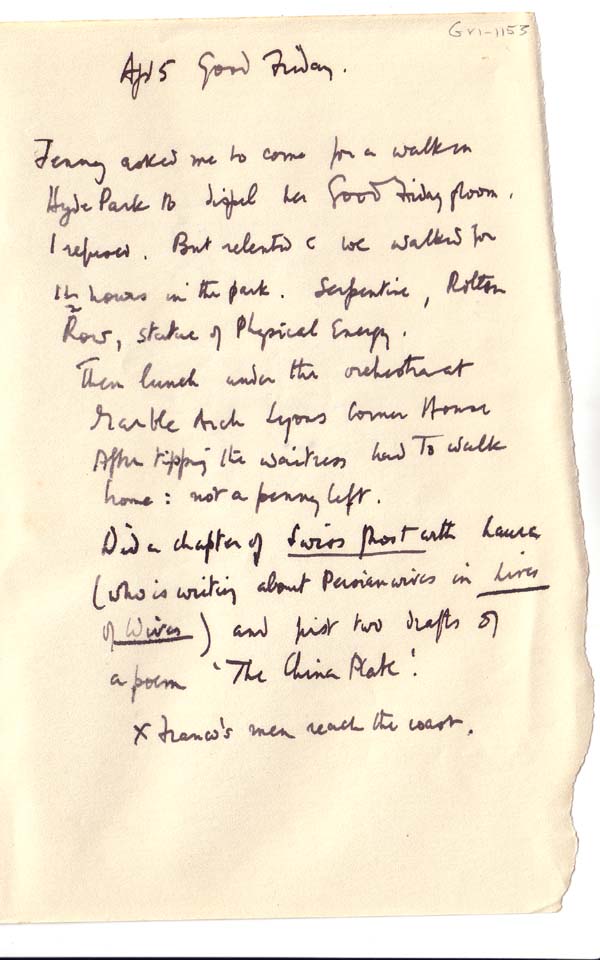 GVI-1153
Apl 5 Good Friday.
Jenny asked me to come for a walk in
Hyde Park to dispel her Good Friday gloom.
I refused. But relented & we walked for
1½ hours in the park. Serpentine, Rotten
Row, statue of Physical Energy.
Then lunch under the orchestra at
Marble Arch Lyons Corner House
After tipping the waitress had to walk
home: not a penny left.
Did a chapter of Swiss Ghost with Laura
(who is writing about Persian wives in Lives
of Wives) and first two drafts of
a poem 'The China Plate'.
x Franco's men reach the coast.